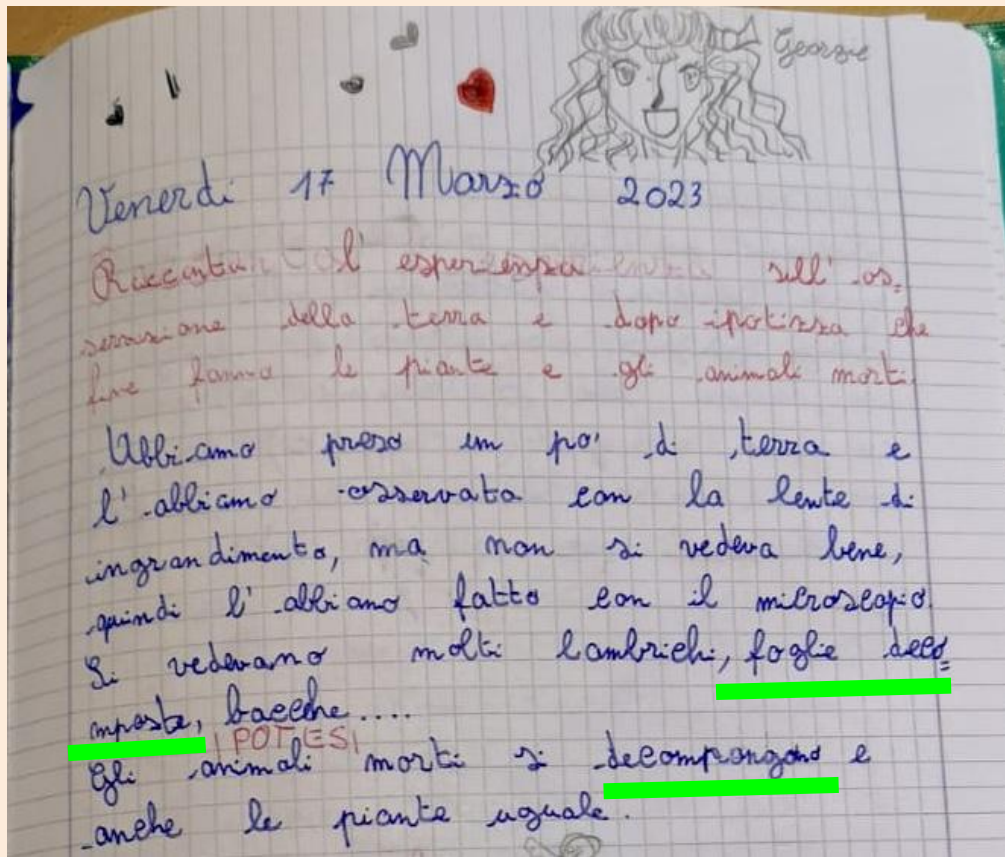 Georgie
Venerdi 17 Marzo 2023
Racconta l'esperienza sull'os=
servazione della terra e dopo ipotizza che
fine fanno le piante e gli animali morti
Abbiamo preso un po' di terra e
l'abbiamo osservata con la lente di
ingrandimento, ma non si vedeva bene,
quindi l'abbiamo fatto con il microscopio.
Si vedevano molti lombrichi, foglie deco=
mposte, bacche....
IPOTESI
Gli animali morti si decompongono e
anche le piante uguale.